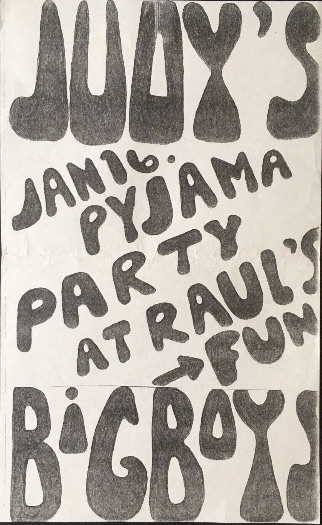 JUDY'S
JAN 16.
PYJAMA
PARTY
AT RAUL'S
→ FUN
BiG BOYS